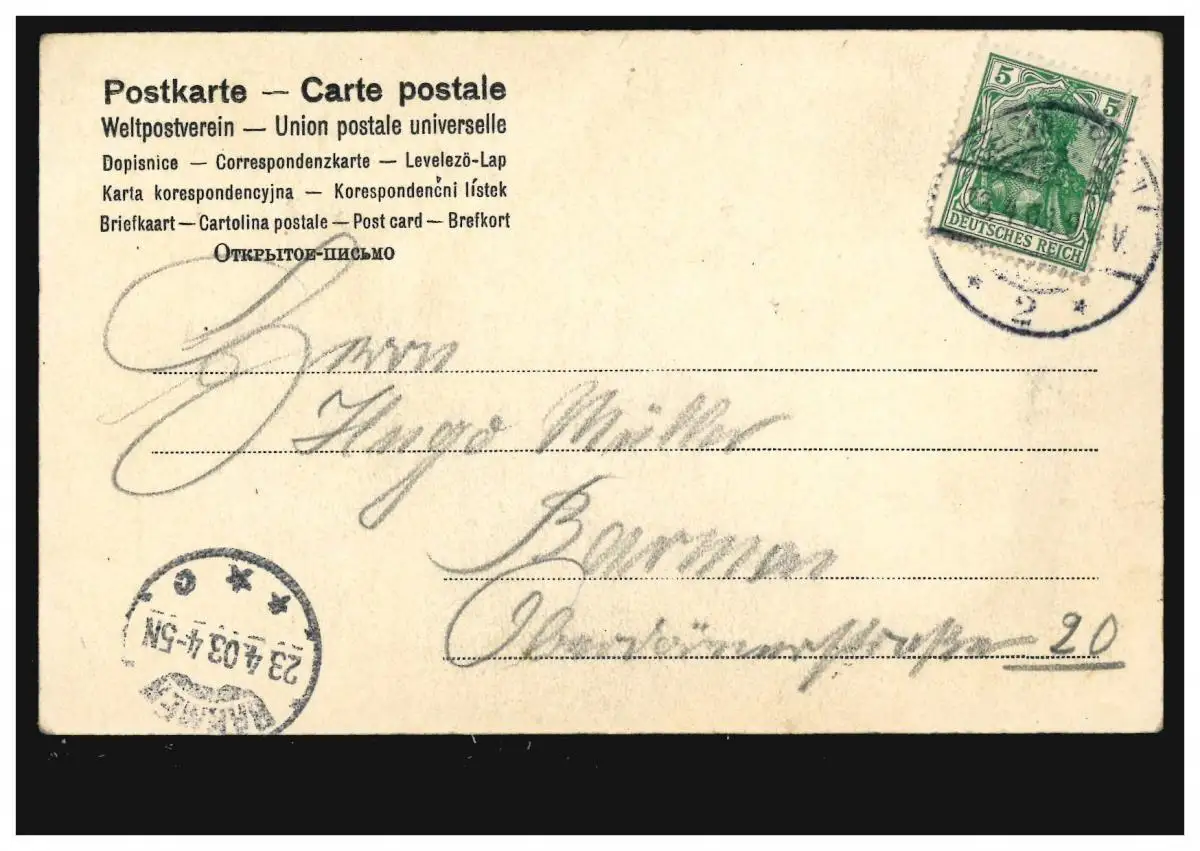 Postkarte — Carte postale
Weltpostverein — Union postale universelle
Dopisnice — Correspondenzkarte — Levelező-Lap
Karta korespondencyjna — Korespondenčni lístek
Briefkaart — Cartolina postale — Post card — Brefkort
Открытое-письмо
5 5
DEUTSCHES REICH
* 2 *
Herrn
Hugo Müller
Barmen
20
BARMEN
23.4.03.4-5N
* c